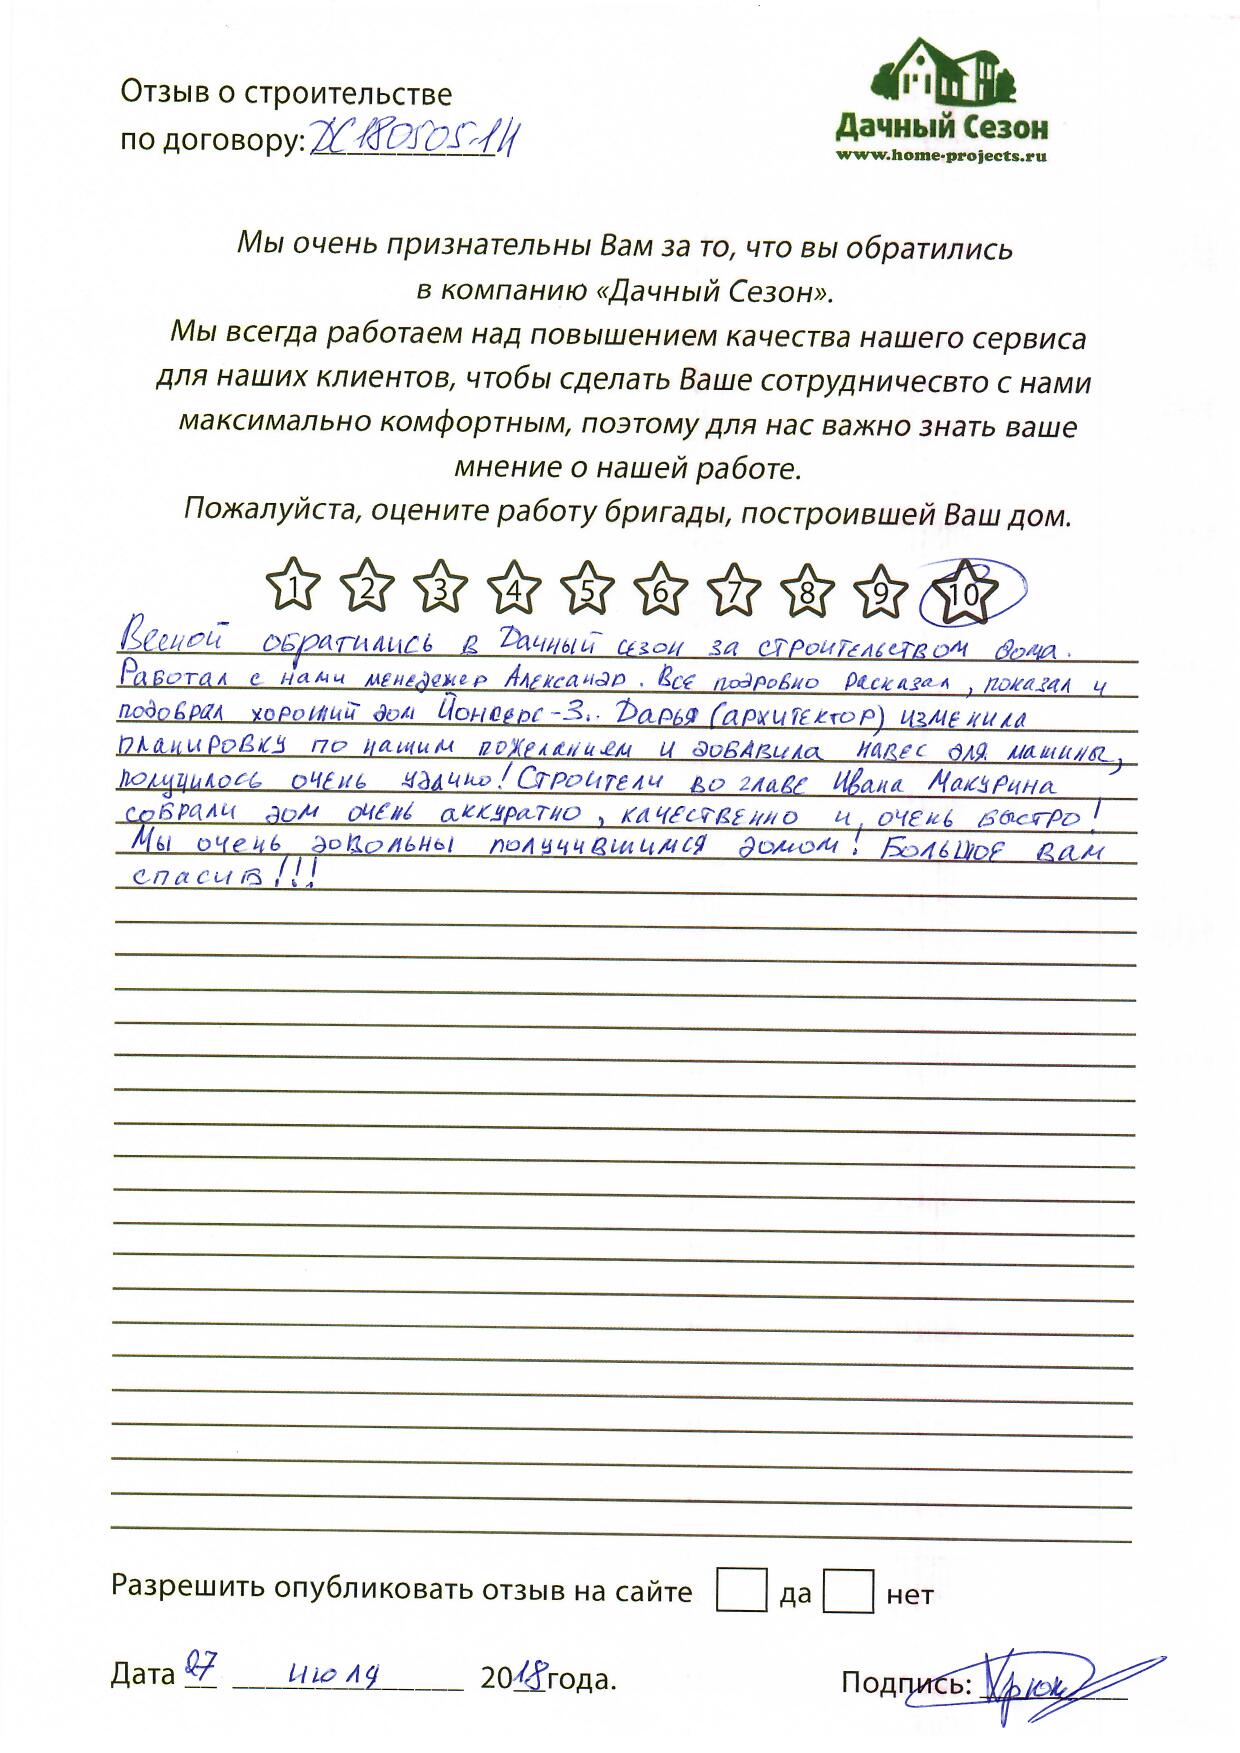 Отзыв о строительстве
по договору: ДС180505-14
Дачный Сезон
www.home-projects.ru
Мы очень признательны Вам за то, что вы обратились
в компанию «Дачный Сезон».
Мы всегда работаем над повышением качества нашего сервиса
для наших клиентов, чтобы сделать Ваше сотрудничесвто с нами
максимально комфортным, поэтому для нас важно знать ваше
мнение о нашей работе.
Пожалуйста, оцените работу бригады, построившей Ваш дом.
1 2 3 4 5 6 7 8 9 10
Весной обратились в Дачный сезон за строительством дома.
Работал с нами менеджер Александр. Все подробно расказал, показал и
подобрал хороший дом Йонсерс-3. Дарья (архитектор) изменила
планировку по нашим пожеланием и добавила навес для машины,
получилось очень удачно! Строители во главе Ивана Макурина
собрали дом очень аккуратно, качественно и очень быстро!
Мы очень довольны получившимся домом! Большое вам
спасиб!!!
Разрешить опубликовать отзыв на сайте да нет
Дата 27 июля 2018 года. Подпись: